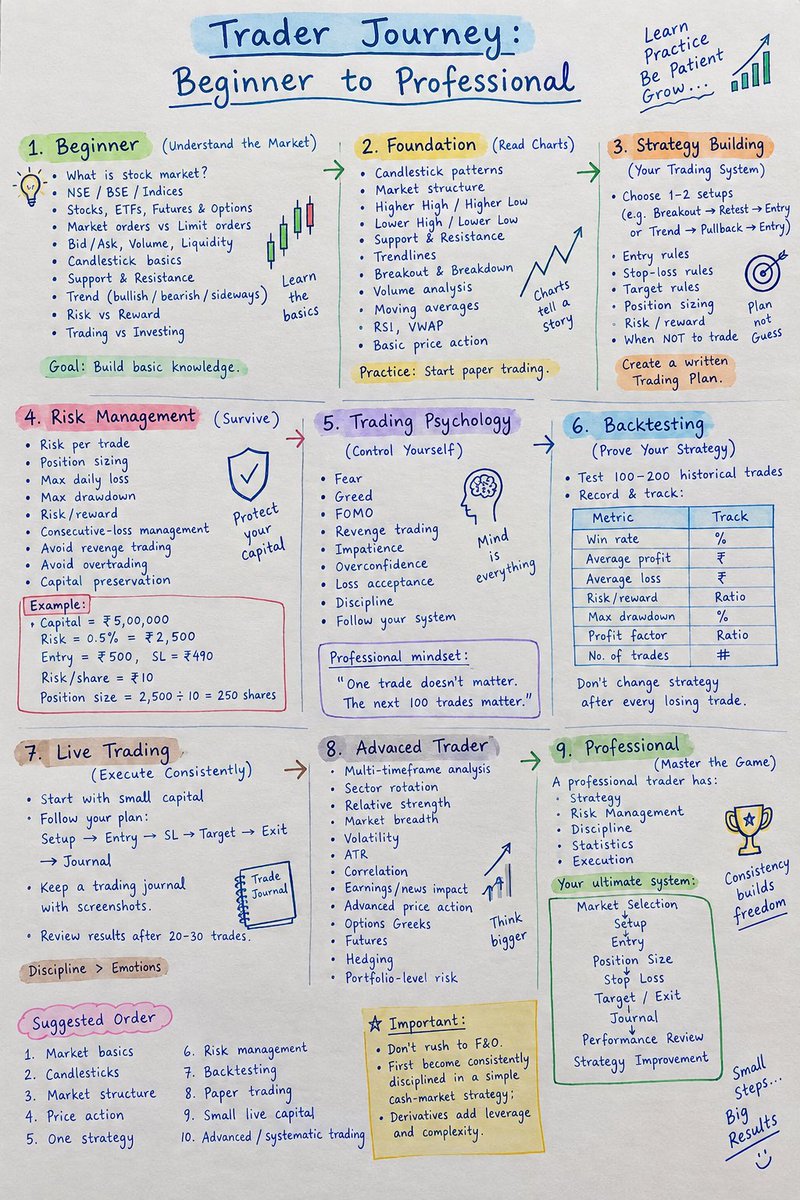 Trader Journey:
Beginner to Professional
Learn
Practice
Be Patient
Grow...
1. Beginner (Understand the Market)
• What is stock market?
• NSE / BSE / Indices
• Stocks, ETFs, Futures & Options
• Market orders vs Limit orders
• Bid/Ask, Volume, Liquidity
• Candlestick basics
• Support & Resistance
• Trend (bullish/bearish/sideways)
• Risk vs Reward
• Trading vs Investing
Learn
the
basics
Goal: Build basic knowledge.
2. Foundation (Read Charts)
• Candlestick patterns
• Market structure
• Higher High / Higher Low
• Lower High / Lower Low
• Support & Resistance
• Trendlines
• Breakout & Breakdown
• Volume analysis
• Moving averages
• RSI, VWAP
• Basic price action
Charts
tell a
story
Practice: Start paper trading.
3. Strategy Building
(Your Trading System)
• Choose 1-2 setups
(e.g. Breakout → Retest → Entry
or Trend → Pullback → Entry)
• Entry rules
• Stop-loss rules
• Target rules
• Position sizing
• Risk / reward
• When NOT to trade
Plan
not
Guess
Create a written
Trading Plan.
4. Risk Management (Survive)
• Risk per trade
• Position sizing
• Max daily loss
• Max drawdown
• Risk/reward
• Consecutive-loss management
• Avoid revenge trading
• Avoid overtrading
• Capital preservation
Protect
your
capital
Example:
• Capital = ₹5,00,000
Risk = 0.5% = ₹2,500
Entry = ₹500, SL = ₹490
Risk/share = ₹10
Position size = 2,500 ÷ 10 = 250 shares
5. Trading Psychology
(Control Yourself)
• Fear
• Greed
• FOMO
• Revenge trading
• Impatience
• Overconfidence
• Loss acceptance
• Discipline
• Follow your system
Mind
is
everything
Professional mindset:
"One trade doesn't matter.
The next 100 trades matter."
6. Backtesting
(Prove Your Strategy)
• Test 100-200 historical trades
• Record & track:
Metric Track
Win rate %
Average profit ₹
Average loss ₹
Risk/reward Ratio
Max drawdown %
Profit factor Ratio
No. of trades #
Don't change strategy
after every losing trade.
7. Live Trading
(Execute Consistently)
• Start with small capital
• Follow your plan:
Setup → Entry → SL → Target → Exit
→ Journal
• Keep a trading journal
with screenshots.
• Review results after 20-30 trades.
Trade
Journal
Discipline > Emotions
8. Advaıced Trader
• Multi-timeframe analysis
• Sector rotation
• Relative strength
• Market breadth
• Volatility
• ATR
• Correlation
• Earnings/news impact
• Advanced price action
• Options Greeks
• Futures
• Hedging
• Portfolio-level risk
Think
bigger
9. Professional
(Master the Game)
A professional trader has:
• Strategy
• Risk Management
• Discipline
• Statistics
• Execution
Consistency
builds
freedom
Your ultimate system:
Market Selection
Setup
Entry
Position Size
Stop Loss
Target / Exit
Journal
Performance Review
Strategy Improvement
Suggested Order
1. Market basics
2. Candlesticks
3. Market structure
4. Price action
5. One strategy
6. Risk management
7. Backtesting
8. Paper trading
9. Small live capital
10. Advanced / systematic trading
☆ Important:
• Don't rush to F&O.
• First become consistently
disciplined in a simple
cash-market strategy;
• Derivatives add leverage
and complexity.
Small
Steps...
Big
Results